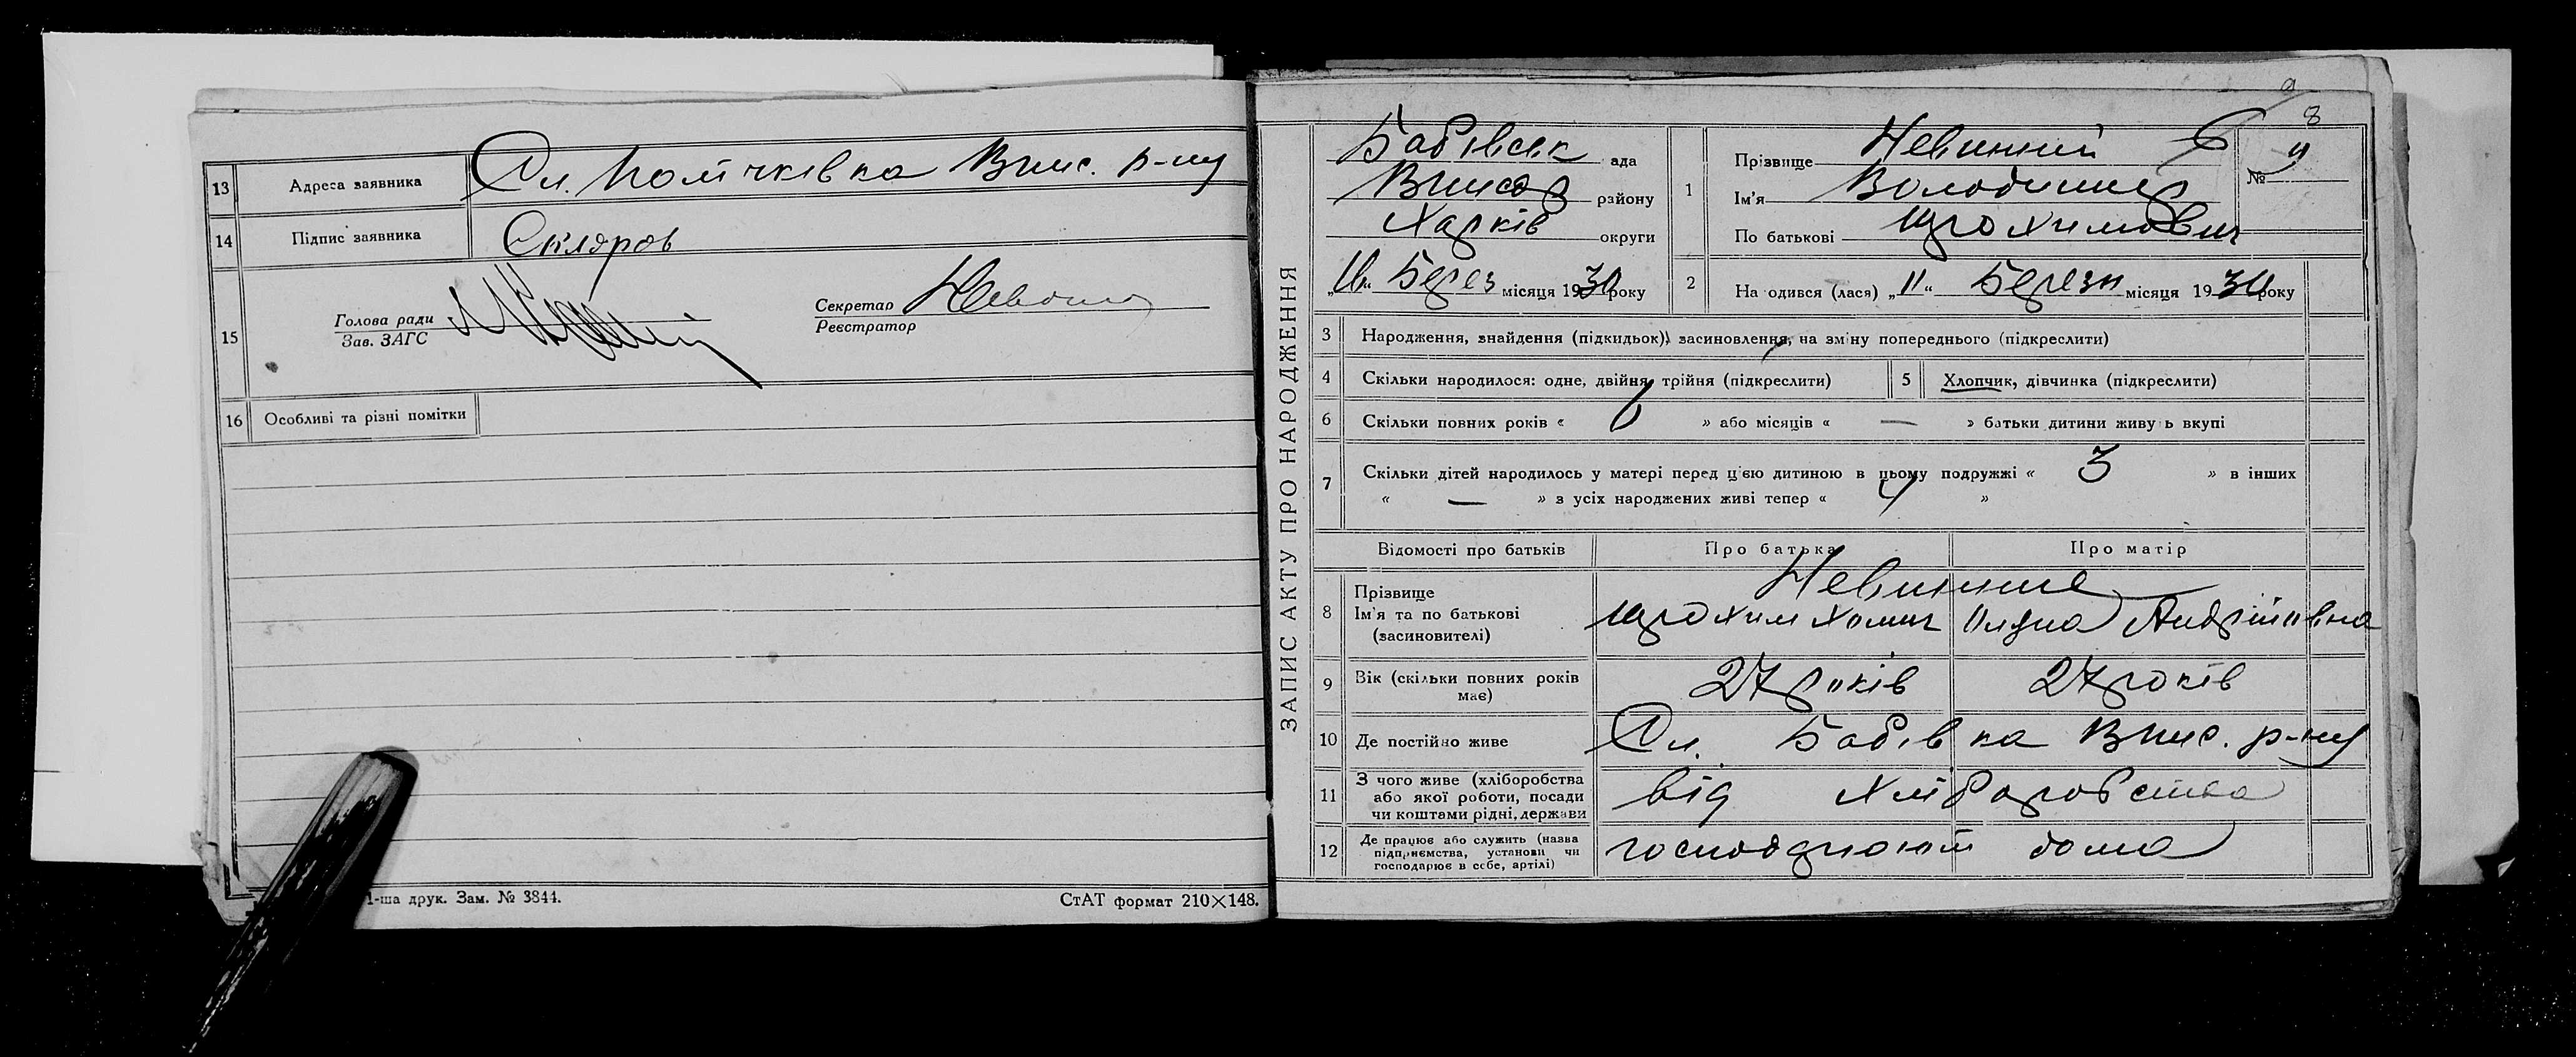 13 Адреса заявника Сл. Помічківка Вшис. р-ну
14 Підпис заявника Скляров
15 Голова ради
Зав. ЗАГС
Секретар
Реєстратор
16 Особливі та різні помітки
1-ша друк. Зам. № 3844.
СтАТ формат 210×148.
ЗАПИС АКТУ ПРО НАРОДЖЕННЯ
8
Бабівськ ада
району
Харків округи
Берез місяця 1930 року
1 Прізвище Невинний
Ім'я Володимир
По батькові Трохимович
№ 9
2 На одився (лася) „11“ Березн місяця 1930 року
3 Народження, знайдення (підкидьок), засиновлення, на зміну попереднього (підкреслити)
4 Скільки народилося: одне, двійня, трійня (підкреслити)
5 Хлопчик, дівчинка (підкреслити)
6 Скільки повних років « 6 » або місяців « — » батьки дитини живу ь вкупі
7 Скільки дітей народилось у матері перед цією дитиною в цьому подружжі « 3 » в інших
« — » з усіх народжених живі тепер « 4 »
Відомості про батьків Про батька Про матір
8 Прізвище Невинние
Ім'я та по батькові Трохим Хомич Андріївна
(засиновителі)
9 Вік (скільки повних років має) 27 років 27 років
10 Де постійно живе Сл. Бабівка Вшис. р-ну
11 З чого живе (хліборобства
або якої роботи, посади
чи коштами рідні, держави
від хліборобства
12 Де працює або служить (назва
підприємства, установи чи
господарює в себе, артілі)
господрюют дома